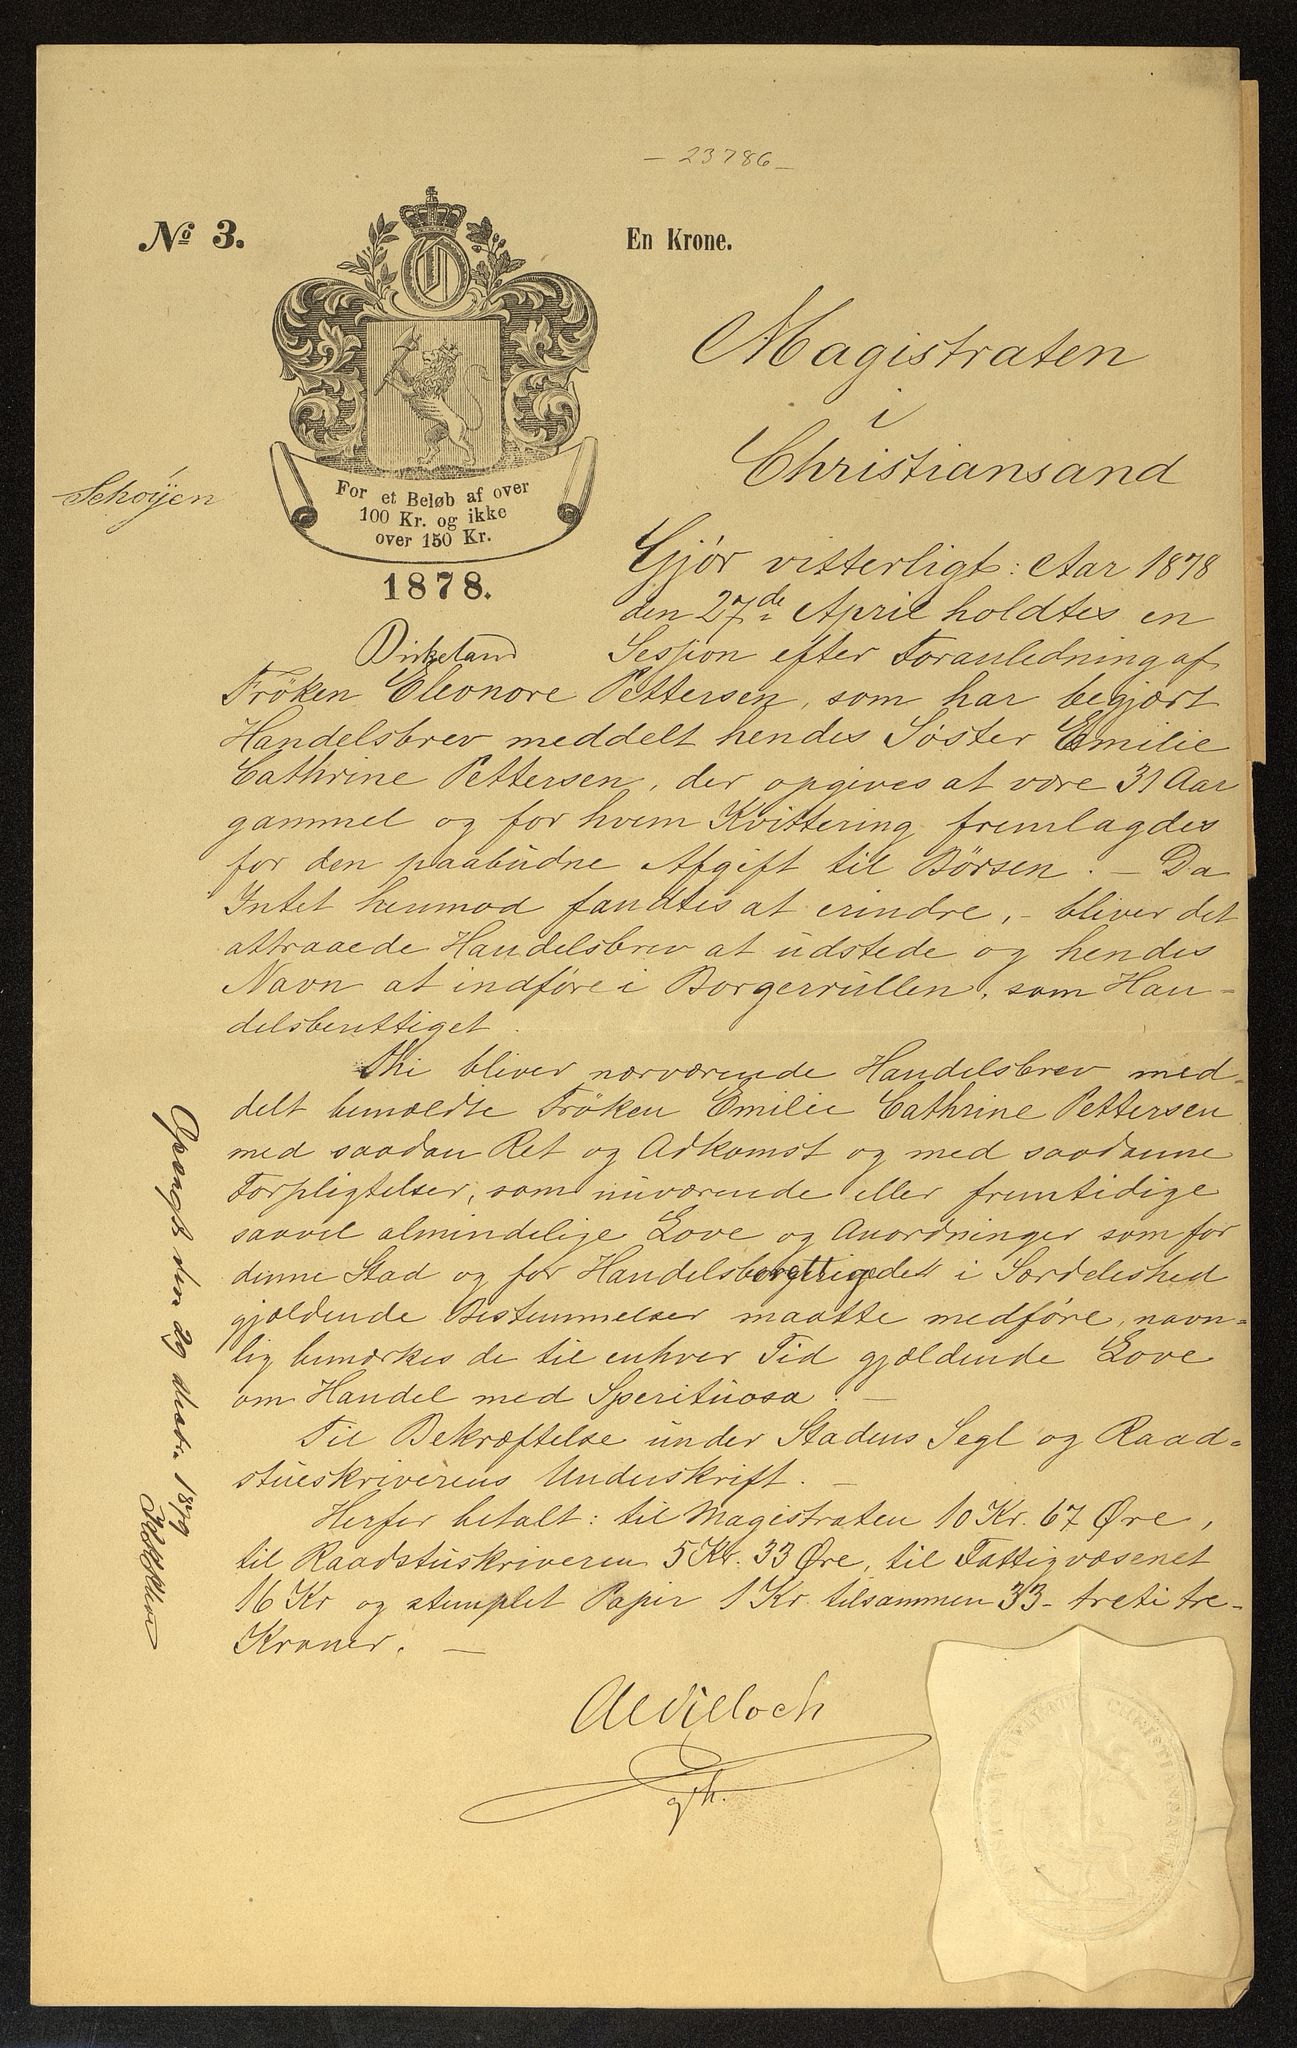 - 23786 -
No 3.
En Krone.
Magistraten
i
Christiansand
Schøÿen
For et Beløb af over
100 Kr. og ikke
over 150 Kr.
1878.
Gjør vitterligt: Aar 1878
den 27de April holdtes en
Birkeland Session efter Foranledning af
Frøken Eleonore Pettersen, som har begjært
Handelsbrev meddelt hendes Søster Emilie
Cathrine Pettersen, der opgives at være 31 Aar
gammel og for hvem Kvittering fremlagdes
for den paabudne Afgift til Børsen. - Da
Intet herimod fandtes at erindre, - bliver det
attraaede Handelsbrev at udstede og hendes
Navn at indføre i Borgerrullen, som Han-
delsberettiget.
Thi bliver nærværende Handelsbrev med-
delt bemældte Frøken Emilie Cathrine Pettersen
med saadan Ret og Adkomst og med saadanne
Forpligtelser, som nuværende eller fremtidige
saavel almindelige Love og Anordninger som for
denne Stad og for Handelsberettigede i Særdeleshed
gjældende Bestemmelser maatte medføre, navn-
lig bemærkes de til enhver Tid gjældende Love
om Handel med Sperituosa. -
Til Bekræftelse under Stadens Segl og Raad-
stueskriverens Underskrift. -
Herfor betalt: til Magistraten 10 Kr. 67 Øre,
til Raadstuskriveren 5 Kr. 33 Øre, til Fattigvæsenet
16 Kr og stemplet Papir 1 Kr. tilsammen 33 - treti tre -
Kroner. -
Opsagt den 29 1879